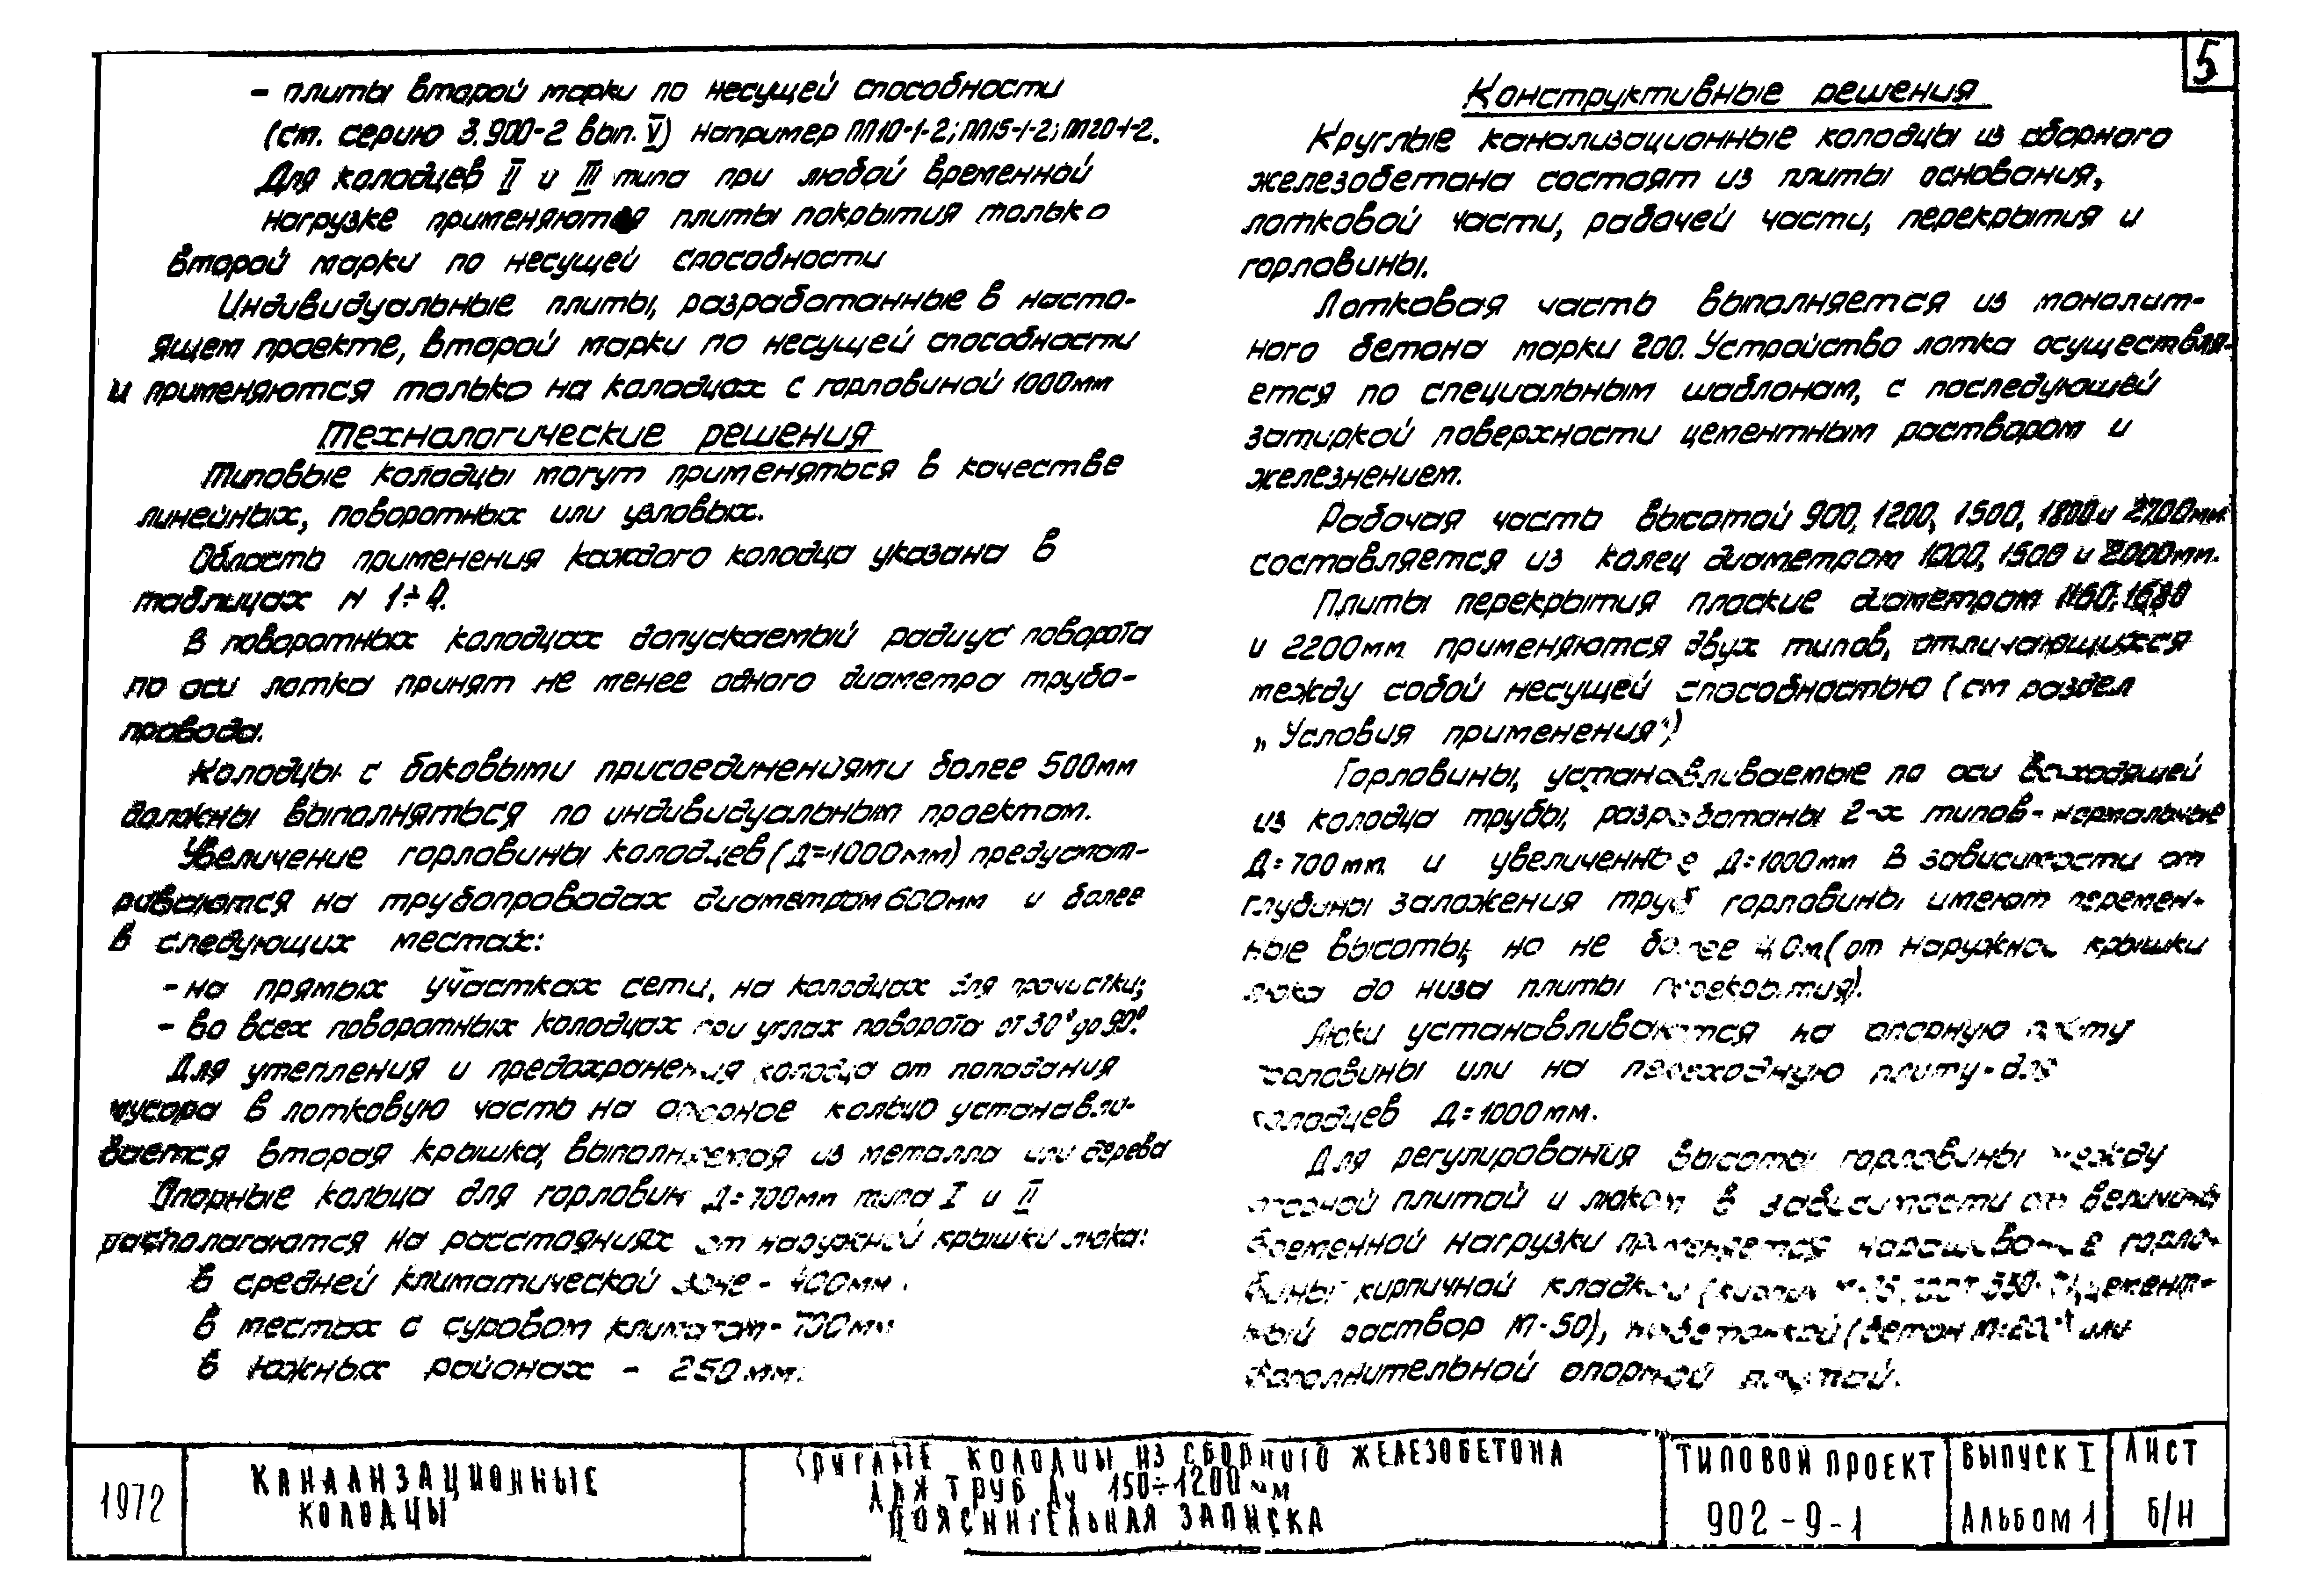 5
- плиты второй марки по несущей способности
(ст. серию 3.900-2 вып. V) например ПП10-1-2; ПП15-1-2; ПП20-1-2.
Для колодцев II и III типа при любой временной
нагрузке применяются плиты покрытия только
второй марки по несущей способности
Индивидуальные плиты, разработанные в насто-
ящем проекте, второй марки по несущей способности
и применяются только на колодцах с горловиной 1000мм
Технологические решения
Типовые колодцы могут применяться в качестве
линейных, поворотных или узловых.
Область применения каждого колодца указана в
таблицах N 1÷4.
В поворотных колодцах допускаемый радиус поворота
по оси лотка принят не менее одного диаметра трубо-
провода.
Колодцы с боковыми присоединениями более 500мм
должны выполняться по индивидуальным проектам.
Увеличение горловины колодцев (Д=1000мм) предусмат-
риваются на трубопроводах диаметром 600мм и более
в следующих местах:
- на прямых участках сети, на колодцах для прочистки;
- во всех поворотных колодцах при углах поворота от 30° до 90°.
Для утепления и предохранения колодца от попадания
мусора в лотковую часть на опорное кольцо устанавли-
вается вторая крышка, выполняемая из металла или дерева
Опорные кольца для горловин Д=700мм типа I и II
располагаются на расстояниях от наружной крышки люка:
в средней климатической зоне - 400мм.
в местах с суровом климатом - 700мм
в южных районах - 250мм.
Конструктивные решения
Круглые канализационные колодцы из сборного
железобетона состоят из плиты основания,
лотковой части, рабочей части, перекрытия и
горловины.
Лотковая часть выполняется из монолит-
ного бетона марки 200. Устройство лотка осуществля-
ется по специальным шаблонам, с последующей
затиркой поверхности цементным раствором и
железнением.
Рабочая часть высотой 900, 1200, 1500, 1800 и 2700мм
составляется из колец диаметром 1000, 1500 и 2000мм.
Плиты перекрытия плоские диаметром 1160, 1680
и 2200мм применяются двух типов, отличающихся
между собой несущей способностью (см раздел
„Условия применения")
Горловины, устанавливаемые по оси выходящей
из колодца трубы, разработаны 2-х типов - нормальные
Д=700мм и увеличенные Д=1000мм В зависимости от
глубины заложения труб горловины имеют перемен-
ные высоты, но не более 4,0м (от наружной крышки
люка до низа плиты перекрытия).
Люки устанавливаются на опорную плиту
горловины или на переходную плиту - для
колодцев Д=1000мм.
Для регулирования высоты горловины между
опорной плитой и люком в зависимости от величины
временной нагрузки применяется наращивание горло-
вины кирпичной кладкой (кирпич цемент-
ный раствор М-50), (бетон или
дополнительной опорной плитой.
1972
КАНАЛИЗАЦИОННЫЕ
КОЛОДЦЫ
КРУГЛЫЕ КОЛОДЦЫ ИЗ СБОРНОГО ЖЕЛЕЗОБЕТОНА
ДЛЯ ТРУБ Ду 150÷1200мм
ПОЯСНИТЕЛЬНАЯ ЗАПИСКА
ТИПОВОЙ ПРОЕКТ
902-9-1
ВЫПУСК I
АЛЬБОМ 1
ЛИСТ
Б/Н